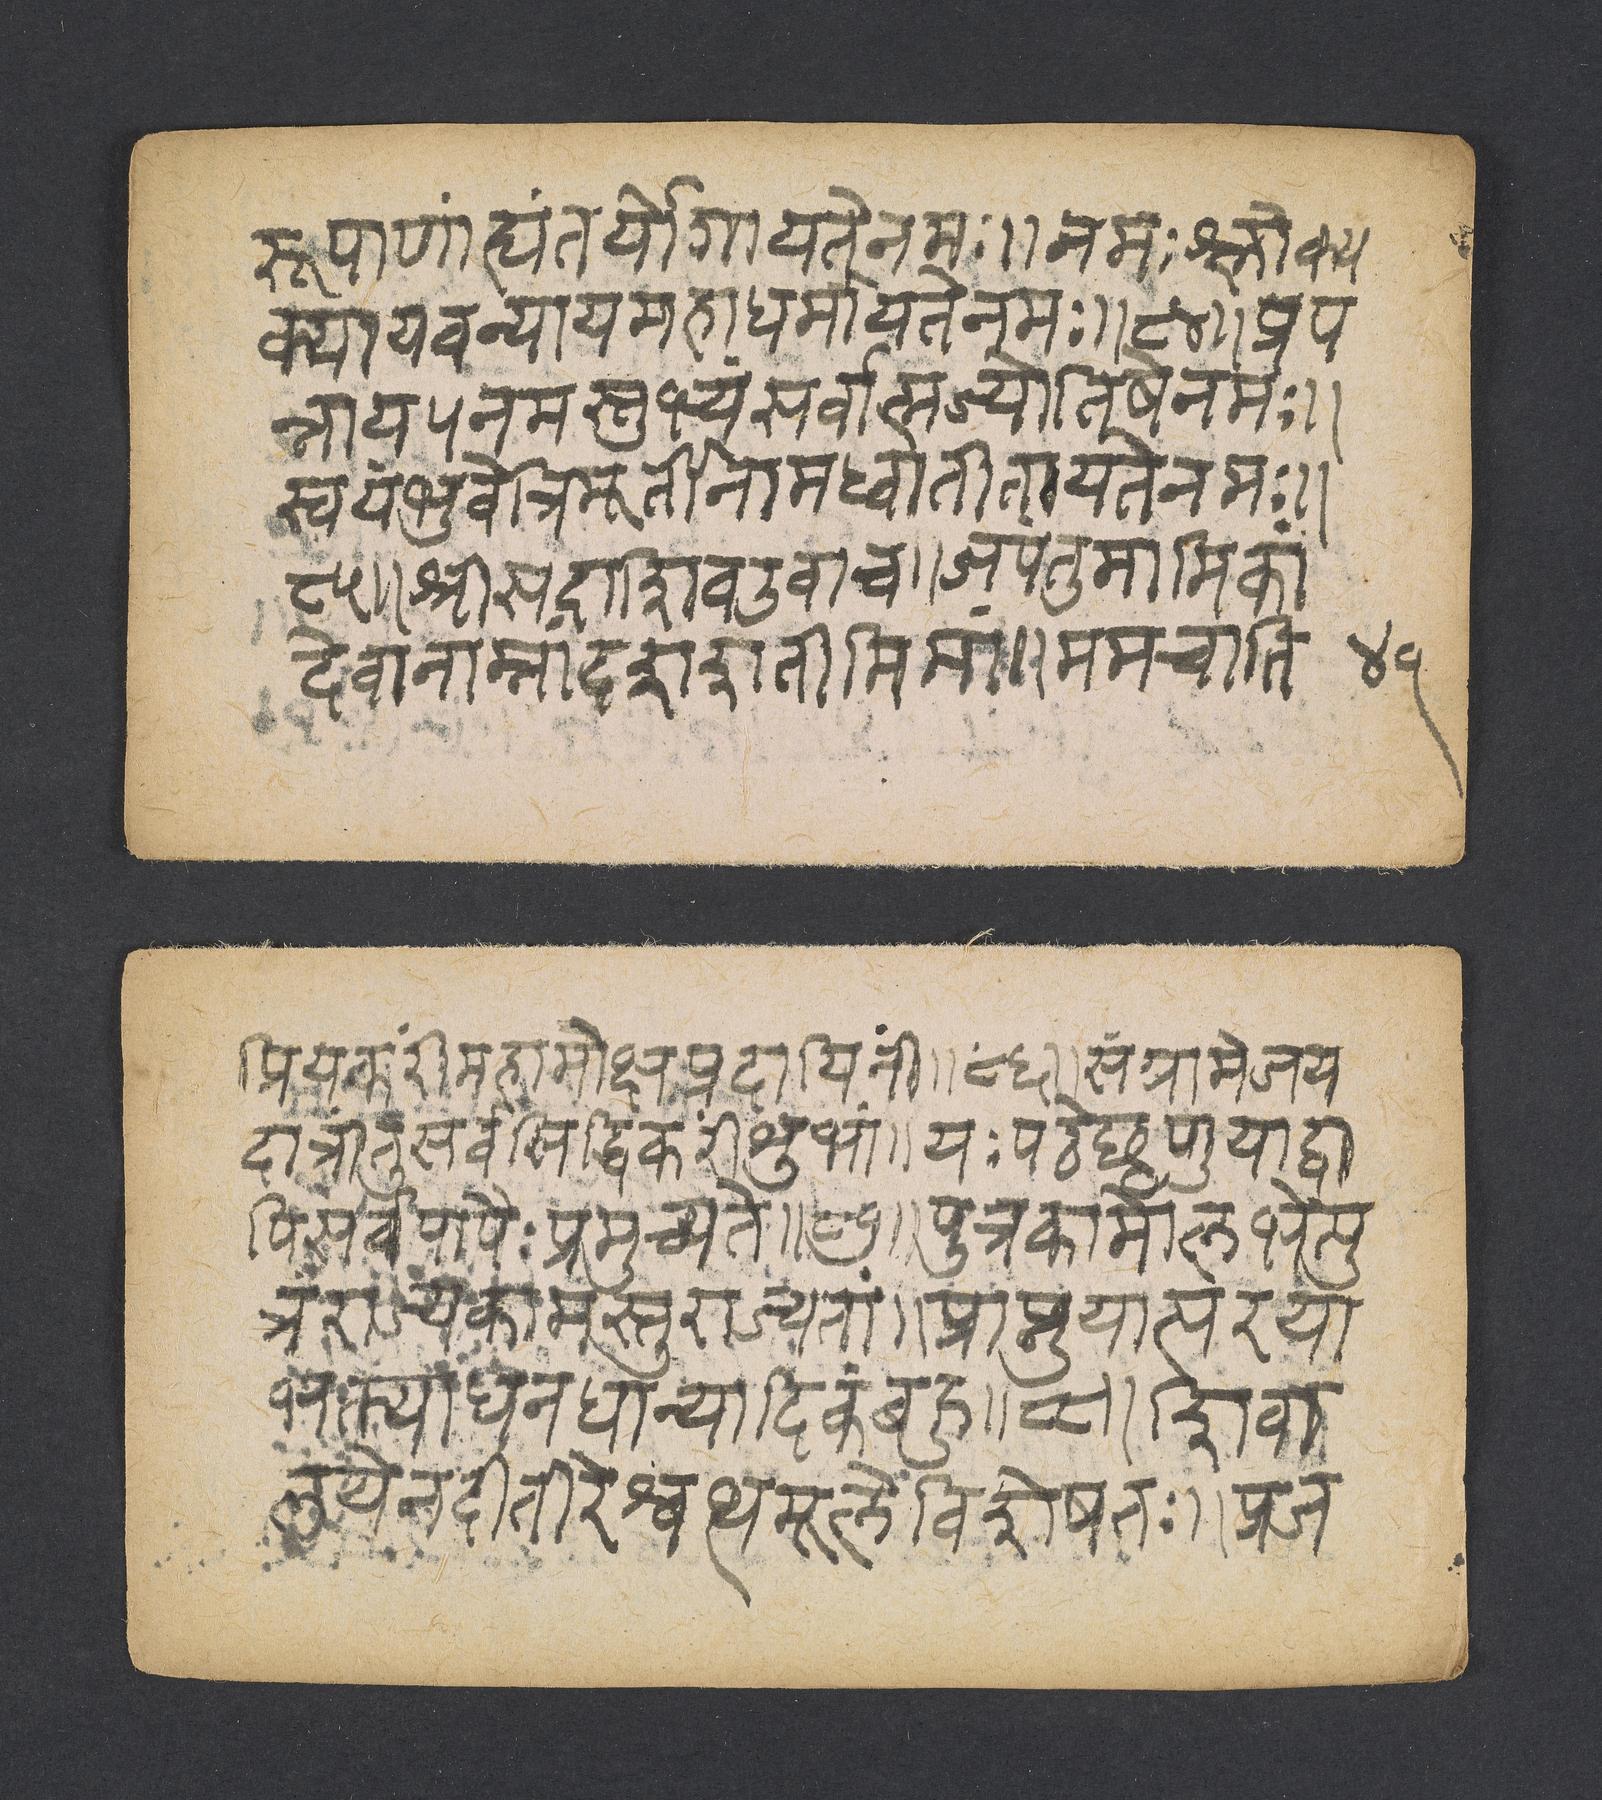 रूपाणांह्यंतर्योगायतेनमः॥नमःश्लोक्य
क्यायवन्यायमहाधर्मायतेनमः॥८४॥प्रप
न्नायऽनमस्तुभ्यंसर्वात्मज्योतिषेनमः॥
स्वयंभुवेत्रिमूर्तीनामध्वातीतायतेनमः॥
८५॥श्रीसदाशिवउवाच॥जपंतुमामिकां
देवानाम्नांदशशतीमिमां॥ममचाति
४१
प्रियंकरींमहामोक्षप्रदायिनीं॥८६॥संग्रामेजय
दात्रींतुसर्वसिद्धिंकरींशुभां॥यःपठेछृणुयाद्वा
पिसर्वपापैःप्रमुच्यते॥८७॥पुत्रकामोलभेत्पु
त्रंराज्यकामस्तुराज्यतां॥प्राप्नुयात्परया
भक्त्याधनधान्यादिकंबहु॥८८॥शिवा
लयेनदीतीरेश्वत्थमूलेविशेषतः॥प्रज